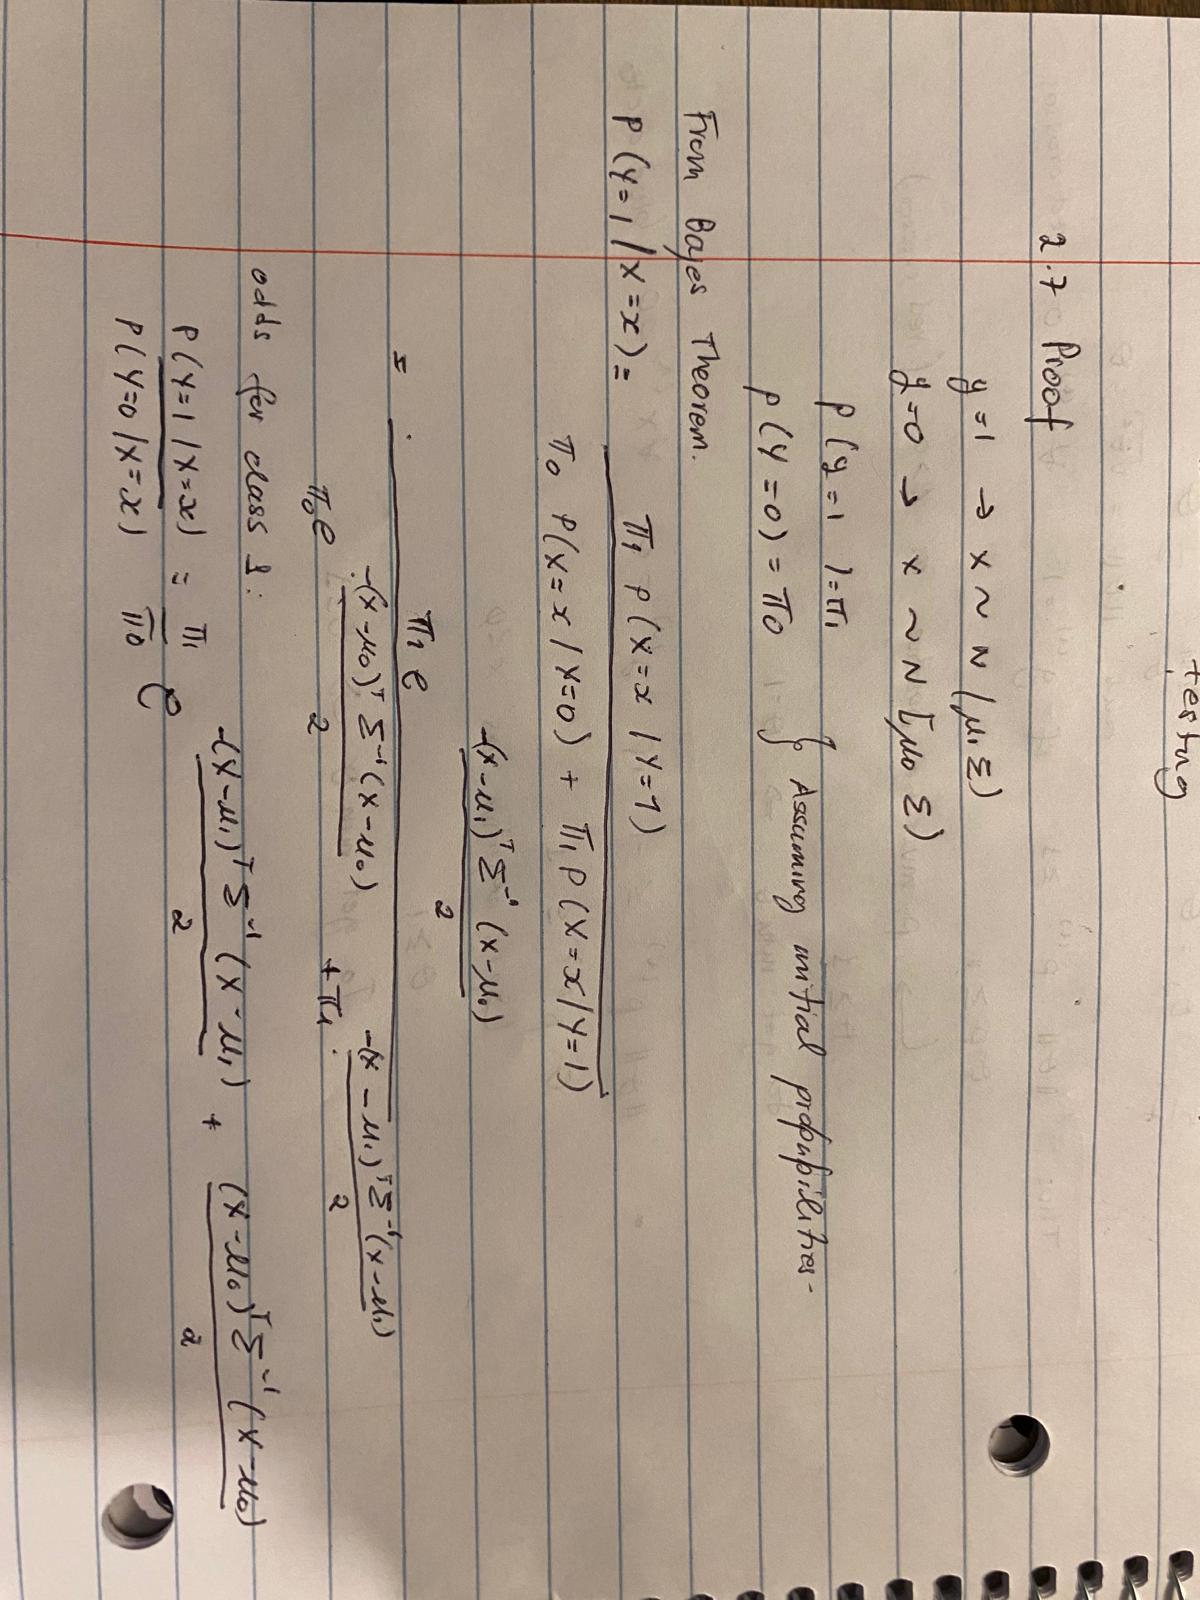 testing
2.7 Proof
y=1 → x ~ N(μ₁ Σ)
y=0 → x ~ N[μ₀ Σ)
P(y=1)=π₁
P(Y=0)=π₀ } Assuming initial probabilities.
From Bayes Theorem.
P(Y=1/X=x)= π₁ P(X=x/Y=1)
π₀ P(X=x/Y=0) + π₁ P(X=x/Y=1)
= π₁ e -(x-μ₁)ᵀ Σ⁻¹ (x-μ₁)
2
π₀ e -(x-μ₀)ᵀ Σ⁻¹ (x-μ₀) + π₁ -(x-μ₁)ᵀ Σ⁻¹ (x-μ₁)
2 2
odds for class 1:
P(Y=1/X=x) = π₁ e -(x-μ₁)ᵀ Σ⁻¹ (x-μ₁) + (x-μ₀)ᵀ Σ⁻¹ (x-μ₀)
P(Y=0/X=x) π₀ 2 2